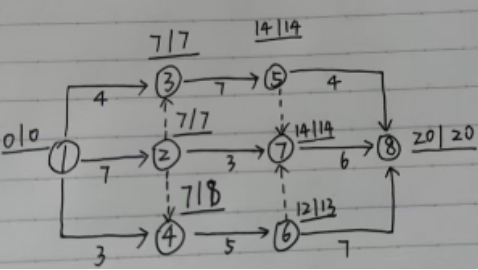 7|7 14|14
③ ⑤
4 7 4
0|0 7|7 14|14 20|20
① ② ⑦ ⑧
7 3 6
7|8 12|13
④ ⑥
3 5 7